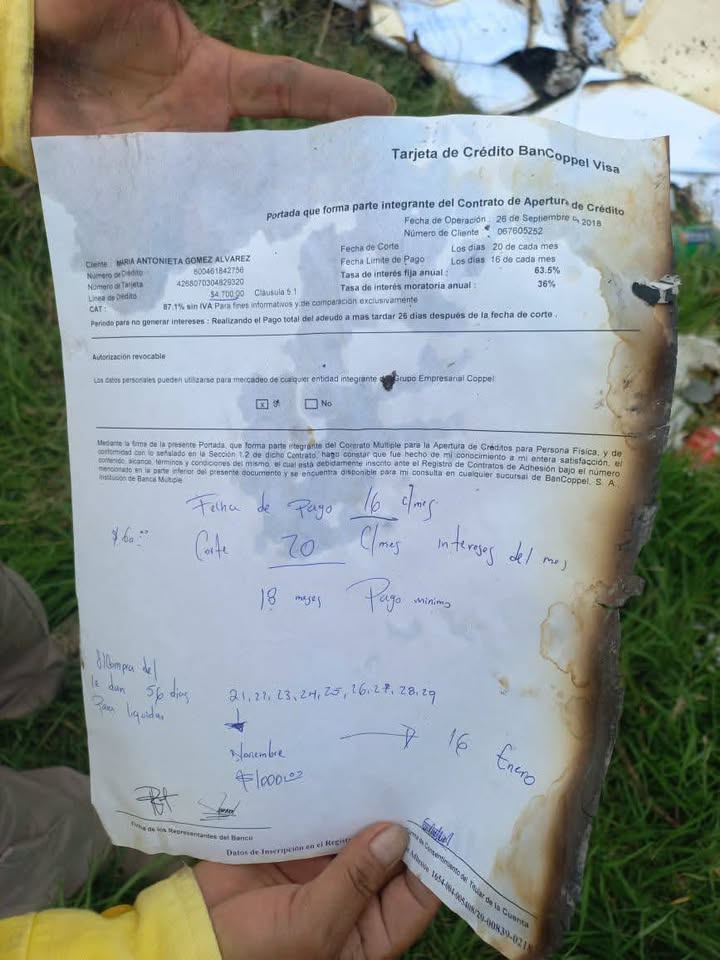 Tarjeta de Crédito BanCoppel Visa
Portada que forma parte integrante del Contrato de Apertura de Crédito
Fecha de Operación : 26 de Septiembre 2018
Número de Cliente 067605252
Cliente : MARIA ANTONIETA GOMEZ ALVAREZ
Número de Crédito 600461842756
Número de Tarjeta 4268070304829320
Línea de Crédito 54,700.00 Cláusula 5.1
CAT : 87.1% sin IVA Para fines informativos y de comparación exclusivamente
Fecha de Corte Los días 20 de cada mes
Fecha Limite de Pago Los días 16 de cada mes
Tasa de interés fija anual : 63.5%
Tasa de interés moratoria anual : 36%
Periodo para no generar intereses : Realizando el Pago total del adeudo a mas tardar 26 días después de la fecha de corte .
Autorización revocable
Los datos personales pueden utilizarse para mercadeo de cualquier entidad integrante Grupo Empresarial Coppel
x No
Mediante la firma de la presente Portada, que forma parte integrante del Contrato Multiple para la Apertura de Créditos para Persona Física, y de
conformidad con lo señalado en la Sección 1.2 de dicho Contrato, hago constar que fue hecho de mi conocimiento a mi entera satisfacción, el
contenido, alcance, términos y condiciones del mismo, el cual está debidamente inscrito ante el Registro de Contratos de Adhesión bajo el número
mencionado en la parte inferior del presente documento y se encuentra disponible para mi consulta en cualquier sucursal de BanCoppel, S. A.,
Institución de Banca Múltiple
Fecha de Pago 16 c/mes
$60.00
Corte 20 C/mes intereses del mes
18 meses Pago minimo
Compra del
le dan 56 dias
Para liquidar
21, 22, 23, 24, 25, 26, 27, 28, 29
Noviembre
16 Enero
$1000.00
Firma de los Representantes del Banco
Consentimiento del Titular de la Cuenta
Datos de Inscripción en el
1654-004-005408/20-00839-0218